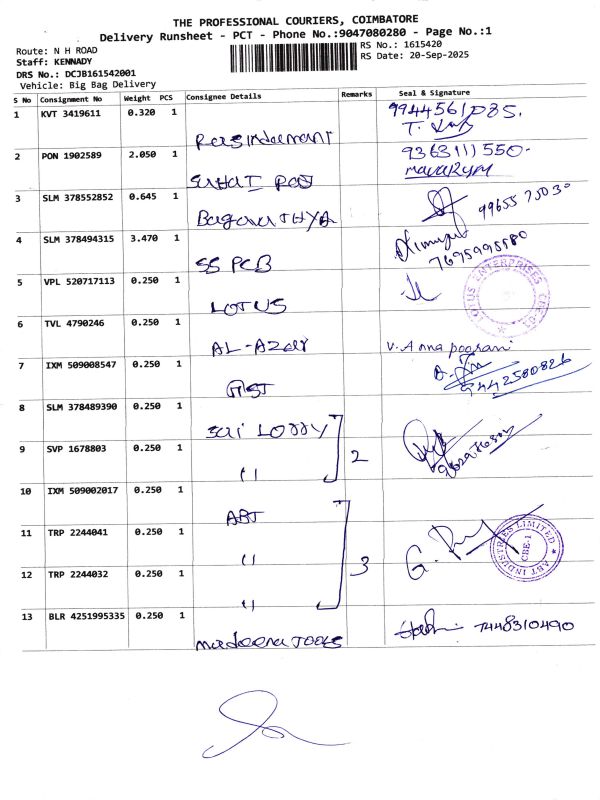 THE PROFESSIONAL COURIERS, COIMBATORE
Delivery Runsheet - PCT - Phone No.:9047080280 - Page No.:1
Route: N H ROAD
Staff: KENNADY
DRS No.: DCJB161542001
Vehicle: Big Bag Delivery
RS No.: 1615420
RS Date: 20-Sep-2025
S No Consignment No Weight PCS Consignee Details Remarks Seal & Signature
1 KVT 3419611 0.320 1 9944561085.
2 PON 1902589 2.050 1 9363111550-
3 SLM 378552852 0.645 1
4 SLM 378494315 3.470 1 SS PCB 7695995580
5 VPL 520717113 0.250 1 LOTUS
6 TVL 4790246 0.250 1 AL-Azar V. Anna poorani
7 IXM 509008547 0.250 1 GST 9442580826
8 SLM 378489390 0.250 1 Sri LORRY
9 SVP 1678803 0.250 1 " 2
10 IXM 509002017 0.250 1 ABT
11 TRP 2244041 0.250 1 " 3
ABT INDUSTRIES LIMITED
CBE-1
12 TRP 2244032 0.250 1 "
13 BLR 4251995335 0.250 1 madeena Tools 7448310490